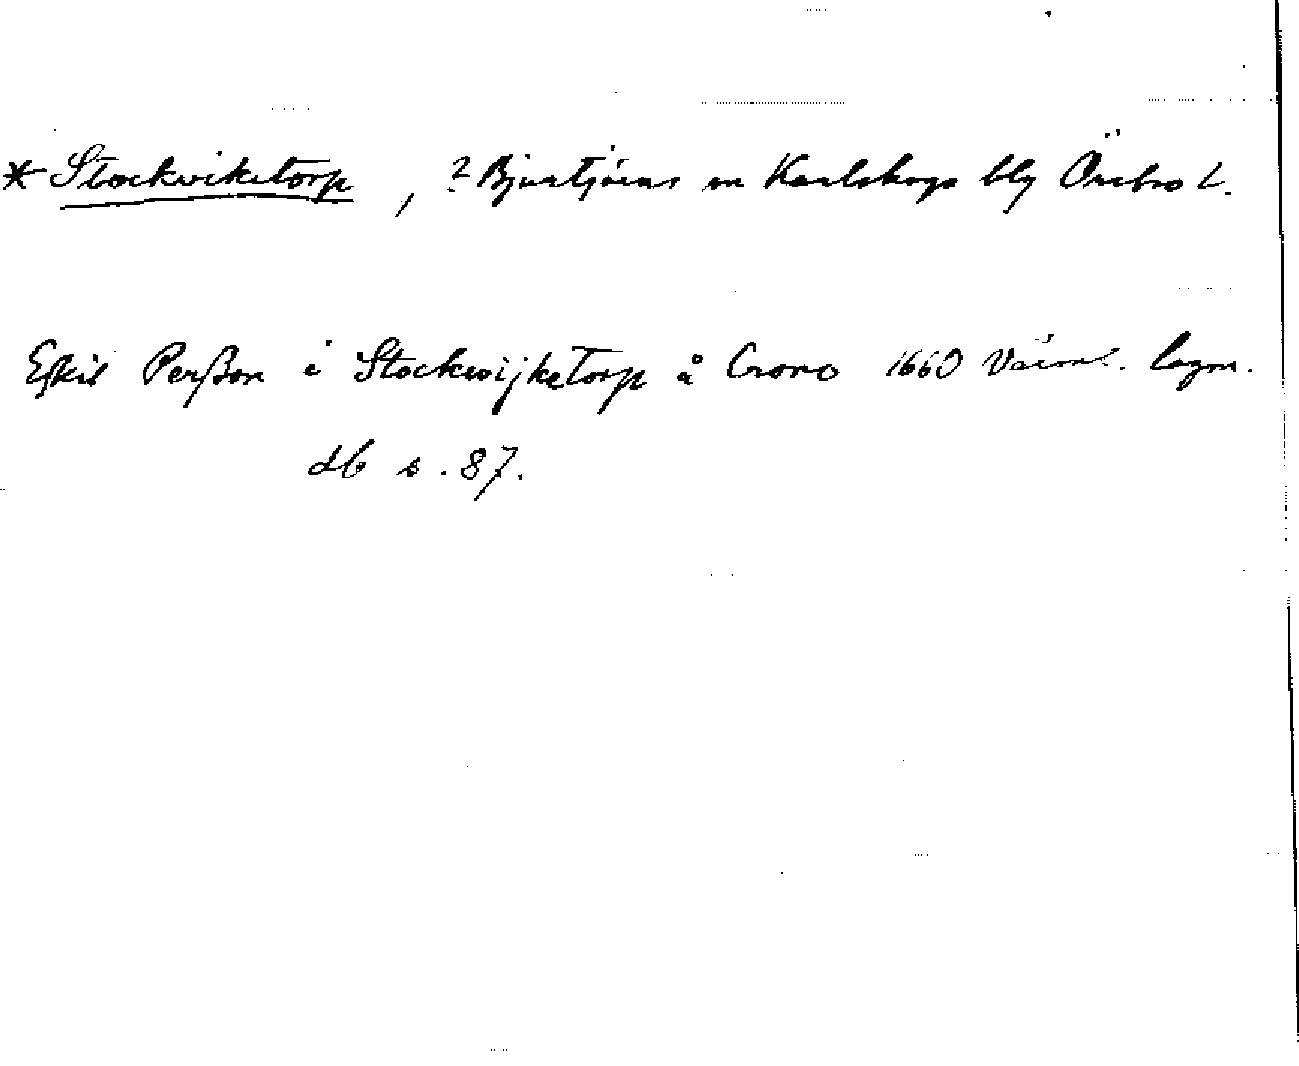 * Stockviketorp, ? Bjurtjärns sn Karlskoga blg Örebro l.
Eskil Perßon i Stockwijketorp å Crono 1660 Värml. lagm.
db s. 87.